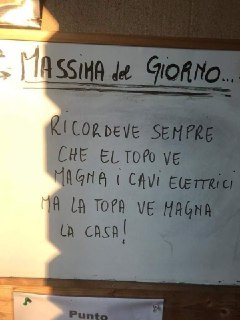 MASSIMA del GIORNO...
RICORDEVE SEMPRE
CHE EL TOPO VE
MAGNA I CAVI ELETTRICI
MA LA TOPA VE MAGNA
LA CASA!
Punto